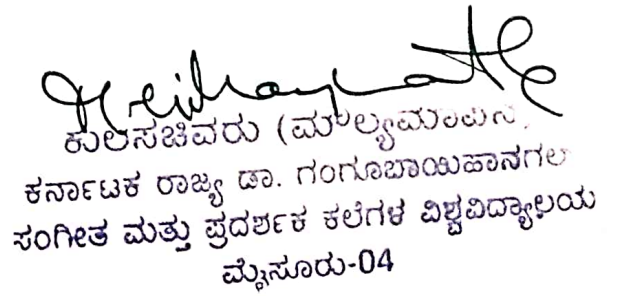 ಕುಲಸಚಿವರು (ಮೌಲ್ಯಮಾಪನ)
ಕರ್ನಾಟಕ ರಾಜ್ಯ ಡಾ. ಗಂಗೂಬಾಯಿಹಾನಗಲ
ಸಂಗೀತ ಮತ್ತು ಪ್ರದರ್ಶಕ ಕಲೆಗಳ ವಿಶ್ವವಿದ್ಯಾಲಯ
ಮೈಸೂರು-04